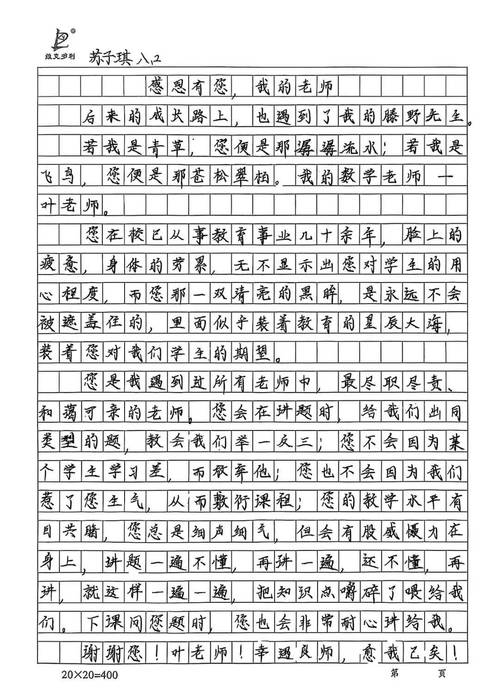 维克多利
苏子琪 八.2
感恩有您，我的老师
后来的成长路上，也遇到了我的藤野先生。
若我是青草，您便是那潺潺流水；若我是
飞鸟，您便是那苍松翠柏。我的数学老师一
叶老师。
您在校已从事教育事业几十余年，脸上的
疲惫，身体的劳累，无不显示出您对学生的用
心程度，而您那一双清亮的黑眸，是永远不会
被遮盖住的，里面似乎装着教育的星辰大海，
装着您对我们学生的期望。
您是我遇到过所有老师中，最尽职尽责、
和蔼可亲的老师。您会在讲题时，给我们出同
类型的题，教会我们举一反三；您不会因为某
个学生学习差，而放弃他；您也不会因为我们
惹了您生气，从而敷衍课程；您的教学水平有
目共睹，您总是细声细气，但会有股威慑力在
身上，讲题一遍不懂，再讲一遍，还不懂，再
讲，就这样一遍一遍，把知识点嚼碎了喂给我
们。下课问您题时，您也会非常耐心讲给我。
谢谢您！叶老师！幸遇良师，愈我己矣！
20×20=400 第 页